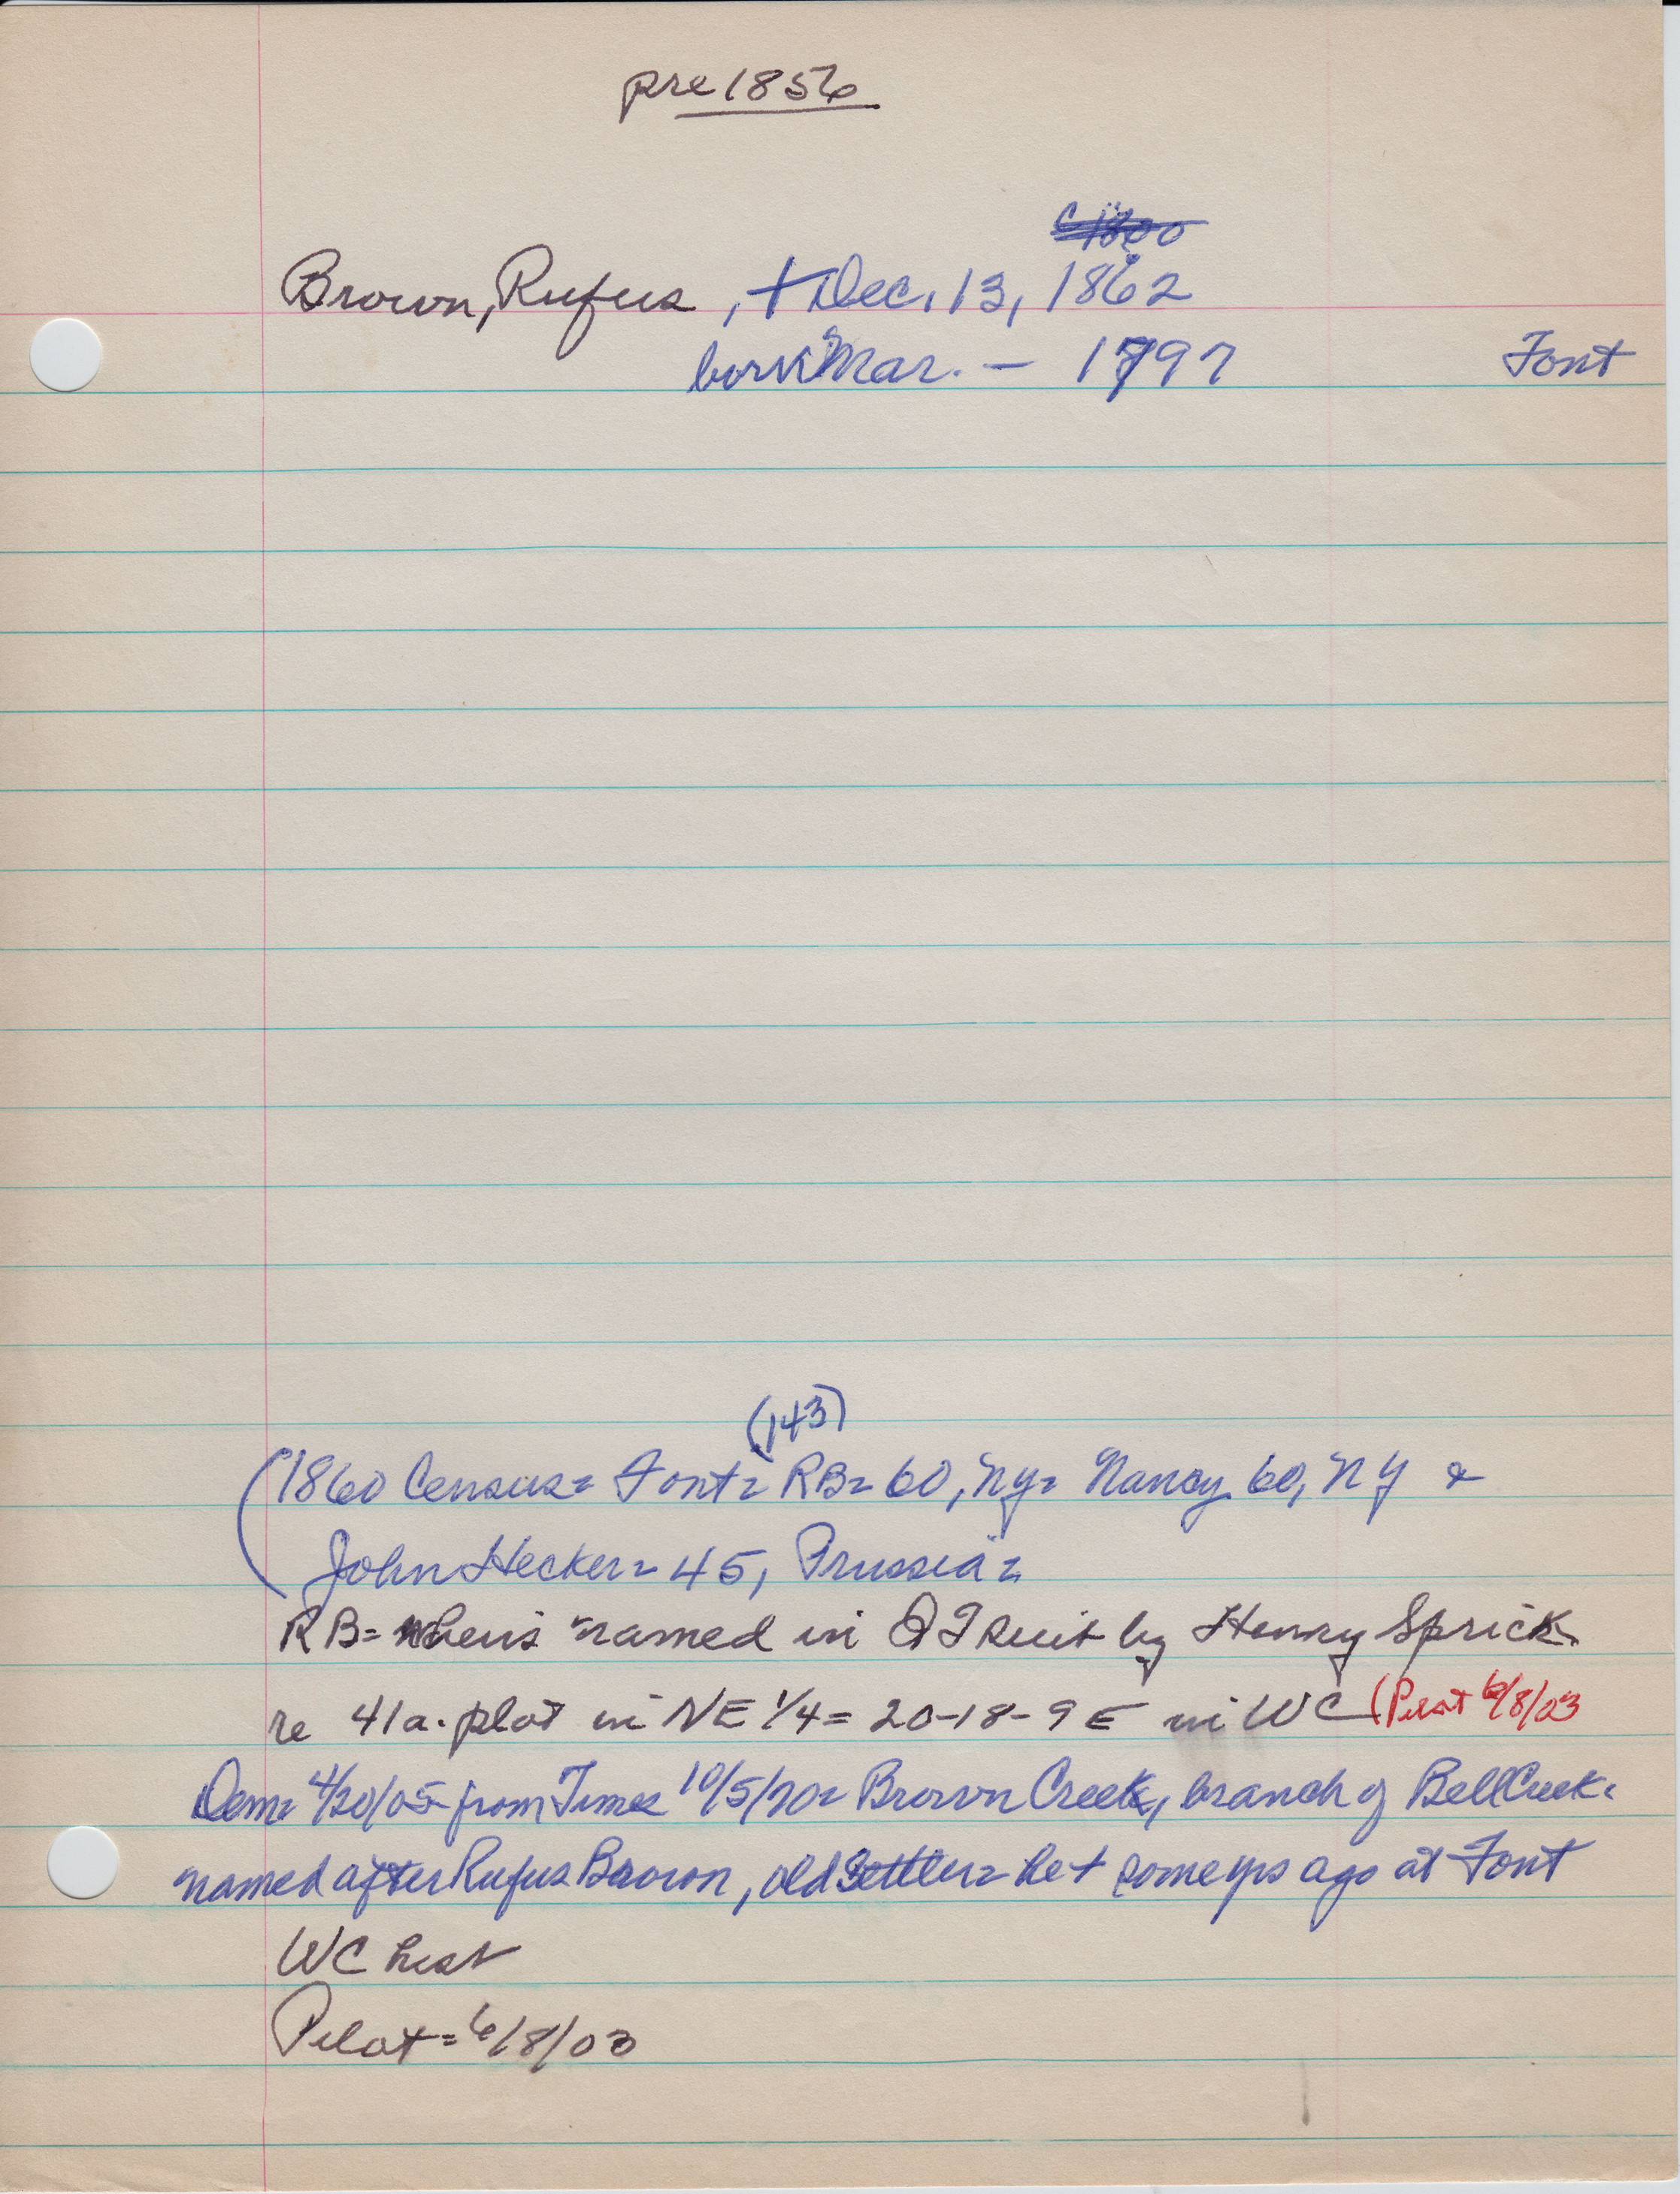 pre 1856
c 1800
Brown, Rufus, + Dec. 13, 1862
born Mar. — 1797 Font
(143)
(1860 Census= Font= RB= 60, NY= Nancy 60, NY &
John Hecker= 45, Prussia=
RB= heirs named in QT suit by Henry Sprick
re 41a. plot in NE 1/4= 20-18-9E in WC (Pilot 6/8/03
Dem= 4/20/05 from Times 10/5/70= Brown Creek, branch of Bell Creek.
named after Rufus Brown, old Settler= he + some yrs ago at Font
WC hist
Pilot= 6/8/03